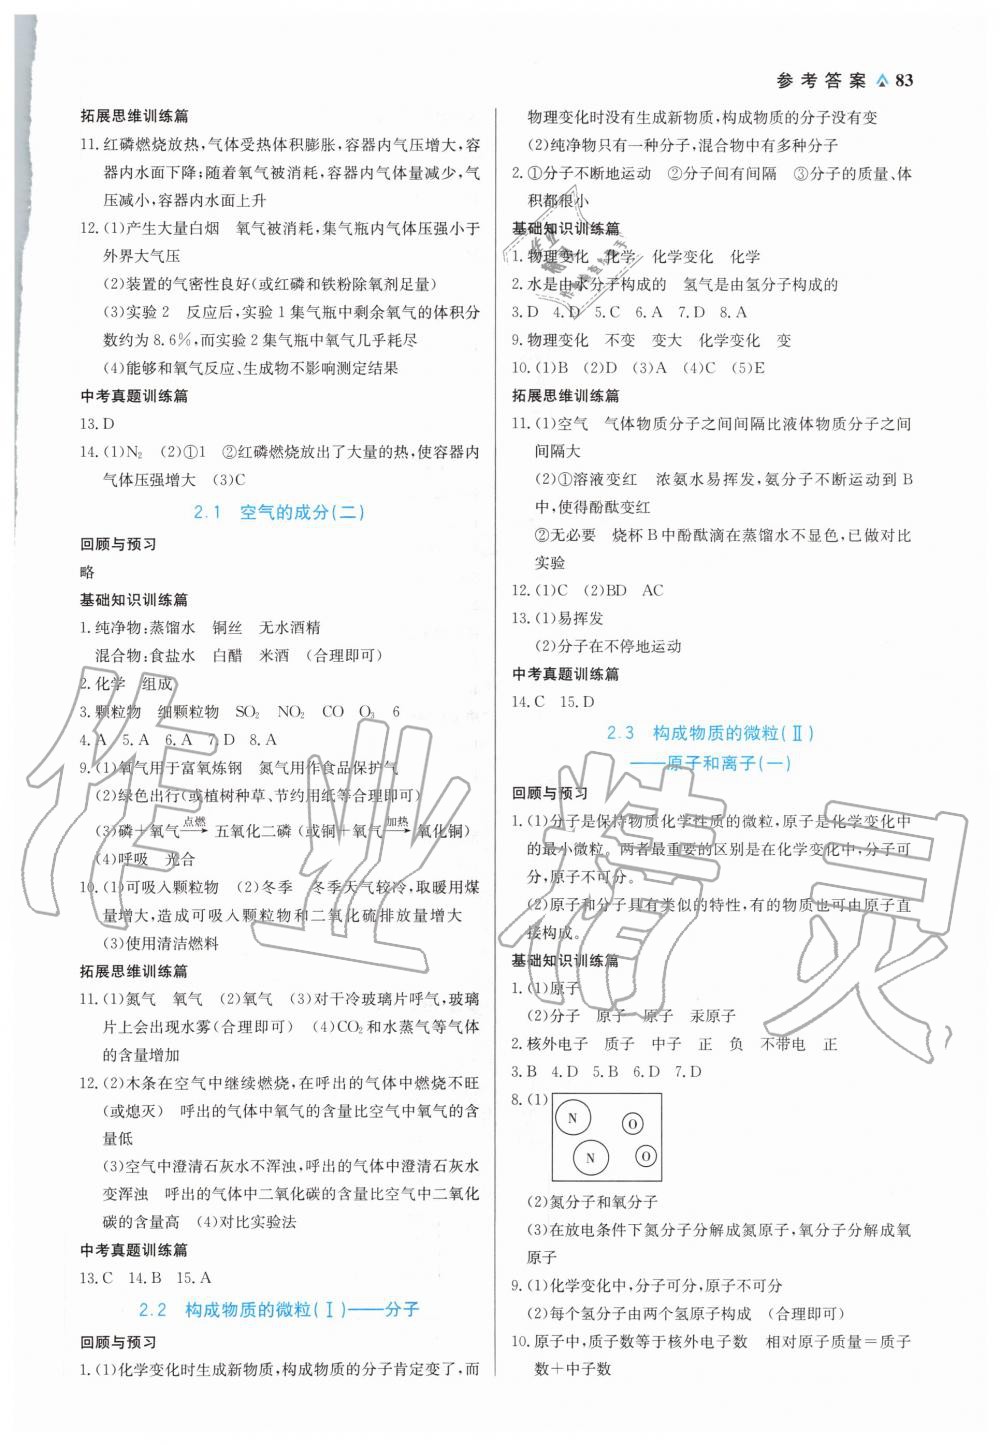 参考答案 83
拓展思维训练篇
11. 红磷燃烧放热,气体受热体积膨胀,容器内气压增大,容
器内水面下降;随着氧气被消耗,容器内气体量减少,气
压减小,容器内水面上升
12. (1)产生大量白烟 氧气被消耗,集气瓶内气体压强小于
外界大气压
(2)装置的气密性良好(或红磷和铁粉除氧剂足量)
(3)实验2 反应后,实验1集气瓶中剩余氧气的体积分
数约为8.6%,而实验2集气瓶中氧气几乎耗尽
(4)能够和氧气反应、生成物不影响测定结果
中考真题训练篇
13. D
14. (1)N₂ (2)①1 ②红磷燃烧放出了大量的热,使容器内
气体压强增大 (3)C
2.1 空气的成分(二)
回顾与预习
略
基础知识训练篇
1. 纯净物:蒸馏水 铜丝 无水酒精
混合物:食盐水 白醋 米酒 (合理即可)
2. 化学 组成
3. 颗粒物 细颗粒物 SO₂ NO₂ CO O₃ 6
4. A 5. A 6. A 7. D 8. A
9. (1)氧气用于富氧炼钢 氮气用作食品保护气
(2)绿色出行(或植树种草、节约用纸等合理即可)
(3)磷+氧气 点燃→ 五氧化二磷(或铜+氧气 加热→ 氧化铜)
(4)呼吸 光合
10. (1)可吸入颗粒物 (2)冬季 冬季天气较冷,取暖用煤
量增大,造成可吸入颗粒物和二氧化硫排放量增大
(3)使用清洁燃料
拓展思维训练篇
11. (1)氮气 氧气 (2)氧气 (3)对干冷玻璃片呼气,玻璃
片上会出现水雾(合理即可) (4)CO₂和水蒸气等气体
的含量增加
12. (2)木条在空气中继续燃烧,在呼出的气体中燃烧不旺
(或熄灭) 呼出的气体中氧气的含量比空气中氧气的含
量低
(3)空气中澄清石灰水不浑浊,呼出的气体中澄清石灰水
变浑浊 呼出的气体中二氧化碳的含量比空气中二氧化
碳的含量高 (4)对比实验法
中考真题训练篇
13. C 14. B 15. A
2.2 构成物质的微粒(Ⅰ)——分子
回顾与预习
1. (1)化学变化时生成新物质,构成物质的分子肯定变了,而
物理变化时没有生成新物质,构成物质的分子没有变
(2)纯净物只有一种分子,混合物中有多种分子
2. ①分子不断地运动 ②分子间有间隔 ③分子的质量、体
积都很小
基础知识训练篇
1. 物理变化 化学 化学变化 化学
2. 水是由水分子构成的 氢气是由氢分子构成的
3. D 4. D 5. C 6. A 7. D 8. D
9. 物理变化 不变 变大 化学变化 变
10. (1)B (2)D (3)A (4)C (5)E
拓展思维训练篇
11. (1)空气 气体物质分子之间间隔比液体物质分子之间
间隔大
(2)①溶液变红 浓氨水易挥发,氨分子不断运动到B
中,使得酚酞变红
②无必要 烧杯B中酚酞滴在蒸馏水不显色,已做对比
实验
12. (1)C (2)BD AC
13. (1)易挥发
(2)分子在不停地运动
中考真题训练篇
14. C 15. D
2.3 构成物质的微粒(Ⅱ)
——原子和离子(一)
回顾与预习
1. (1)分子是保持物质化学性质的微粒,原子是化学变化中
的最小微粒。两者最重要的区别是在化学变化中,分子可
分,原子不可分。
(2)原子和分子具有类似的特性,有的物质也可由原子直
接构成。
基础知识训练篇
1. (1)原子
(2)分子 原子 原子 汞原子
2. 核外电子 质子 中子 正 负 不带电 正
3. B 4. D 5. B 6. D 7. D
8. (1) N O
N O
(2)氮分子和氧分子
(3)在放电条件下氮分子分解成氮原子,氧分子分解成氧
原子
9. (1)化学变化中,分子可分,原子不可分
(2)每个氢分子由两个氢原子构成 (合理即可)
10. 原子中,质子数等于核外电子数 相对原子质量=质子
数+中子数
作业精灵